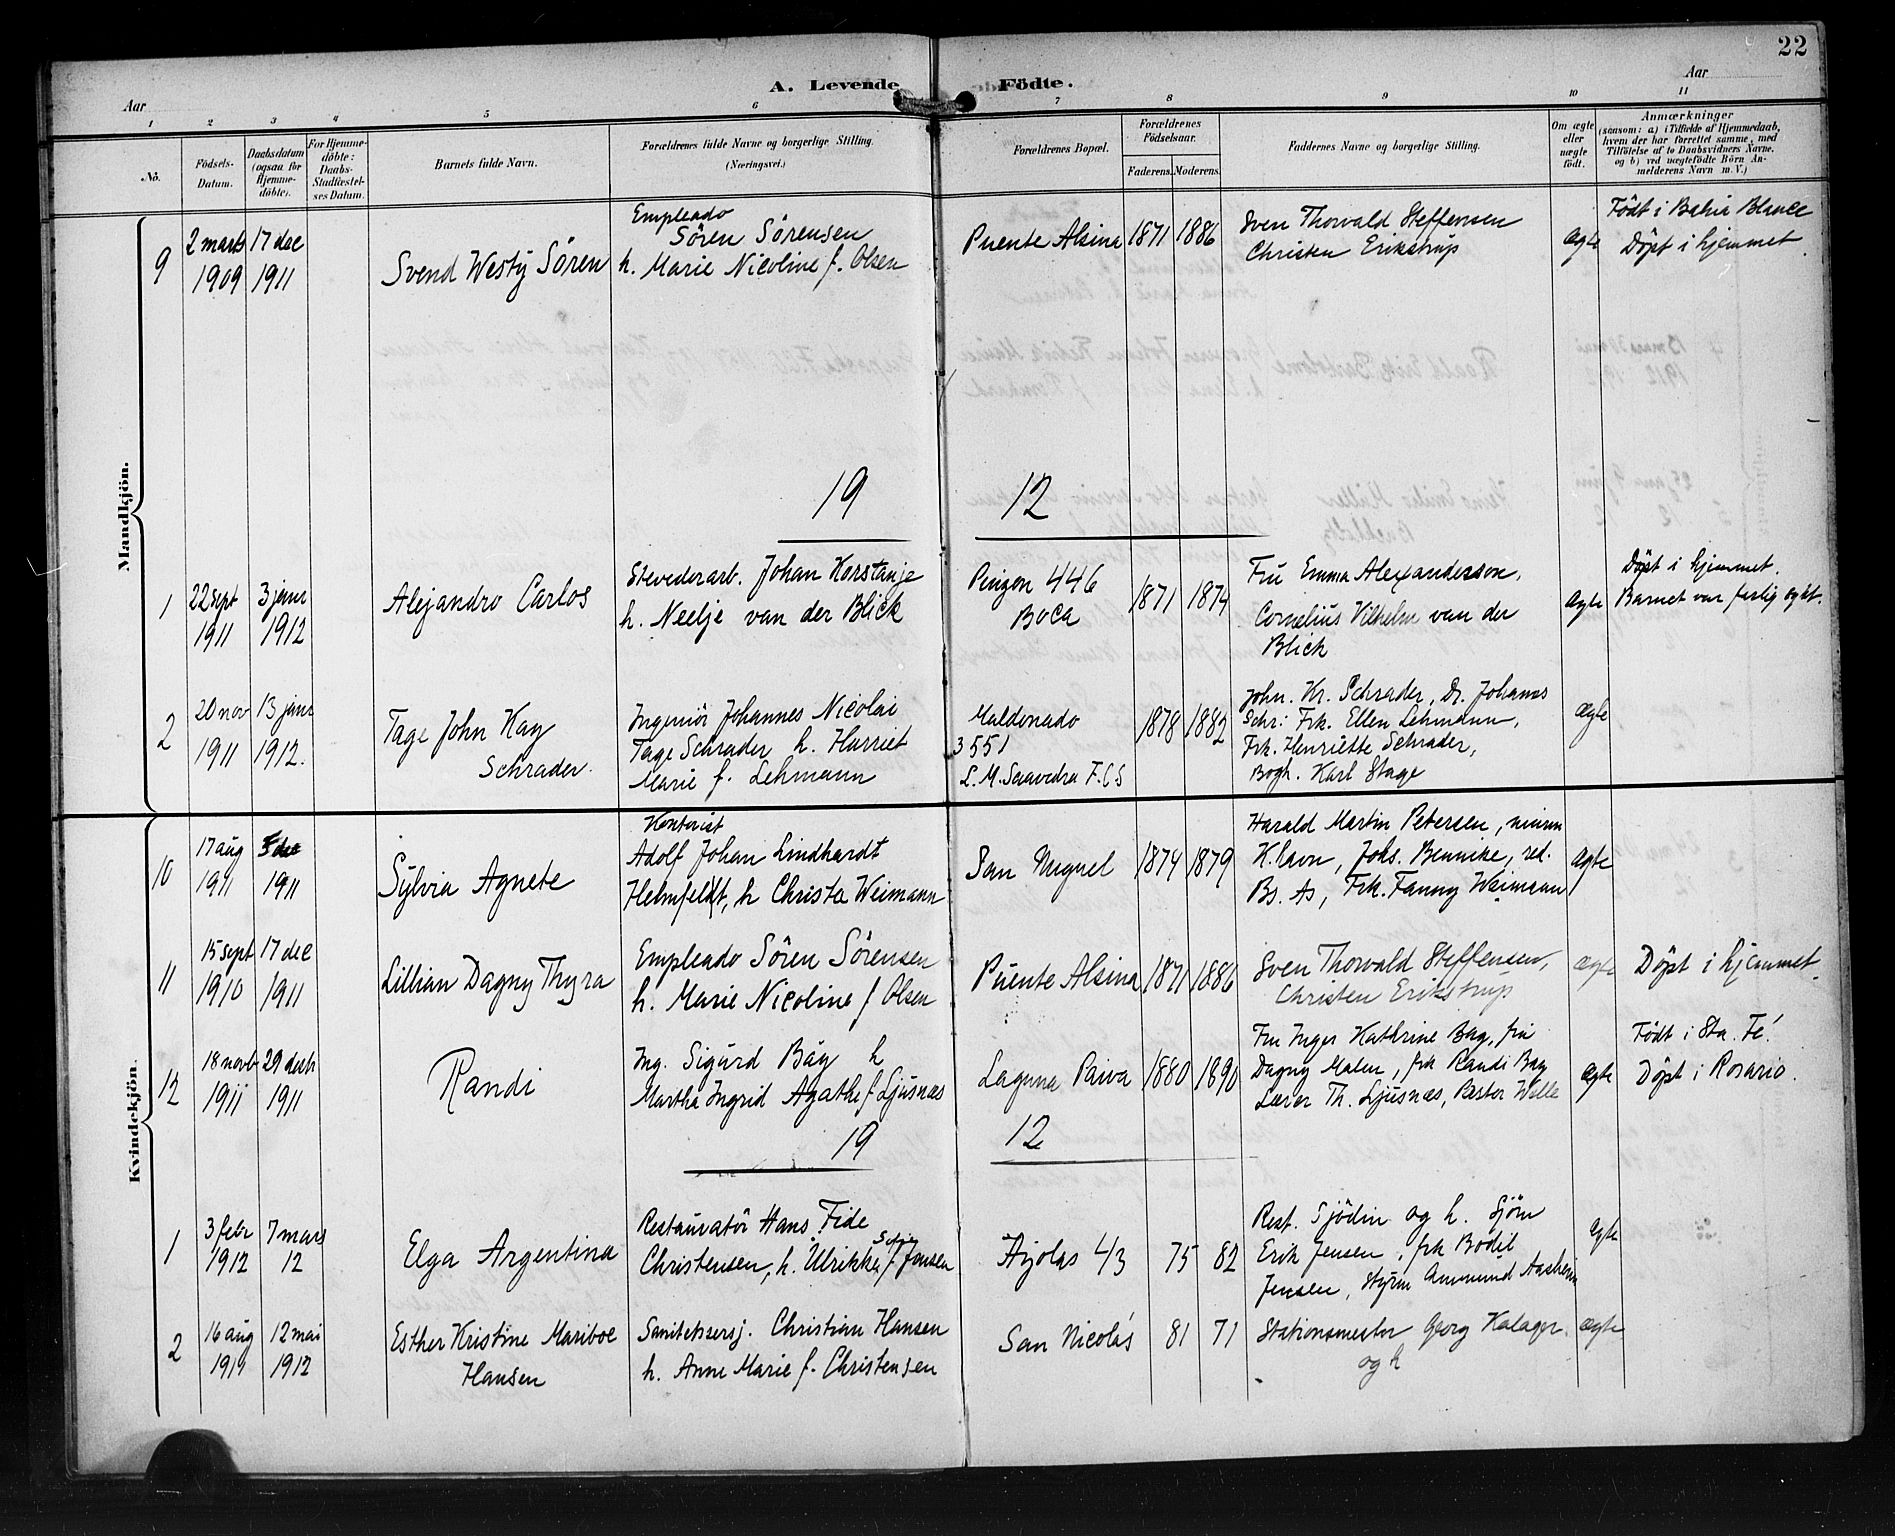 22
A. Levende Födte.
Aar
Aar
1 2 3 4 5 6 7 8 9 10 11
No.
Födsels-Datum.
Daabsdatum (ogsaa for Hjemme-döbte).
For Hjemme-döbte: Daabs-Stadfæstelses Datum.
Barnets fulde Navn.
Forældrenes fulde Navne og borgerlige Stilling.
(Næringsvei.)
Forældrenes Bopæl.
Forældrenes Födselsaar.
Faderens. Moderens.
Faddernes Navne og borgerlige Stilling.
Om ægte eller uægte födt.
Anmærkninger
(saasom: a) i Tilfælde af Hjemmedaab, hvem der har forrettet samme, med Tilföielse af to Daabsvidners Navne, og b) ved uægtefödte Börn Anmelderens Navn m. V.)
Mandkjön.
9
2 marts 1909
17 dec 1911
Svend Westy Sören
Empleado
Sören Sörensen
h. Marie Nicoline f. Olsen
Puente Alsina
1871
1886
Sven Thorvald Steffensen
Christen Erikstrup
ægte
Födt i Bahia Blance
Döpt i hjemmet.
19 12
1
22 sept 1911
3 janr 1912
Alejandro Carlos
Stevedorarb. Johan Korstanje
h. Neelje van der Blick
Pinzon 446
Boca
1871
1874
Fru Emma Alexanderson,
Cornelius Vilhelm van der
Blick
ægte
Döpt i hjemmet.
Barnet var farlig sykt.
2
20 nov 1911
13 janr 1912.
Tage John Kay
Schrader.
Ingeniör Johannes Nicolai
Tage Schrader h. Harriet
Marie f. Lehmann
Maldonado
3551
L. M. Saavedra F.C.S
1878
1882
John. Kr. Schrader, Dr. Johannes
Schr: Frk. Ellen Lehmann,
Frk. Henriette Schrader,
Bogh. Karl Stage
ægte
Kvindekjön.
10
17 aug 1911
5 dec 1911
Sylvia Agnete
Kontorist
Adolf Johan Lindhardt
Helmfeldt, h Christa Weimann
San Miguel
1874
1879
Harald Martin Petersen,
K.havn, Johs. Bennike, red.
Bs. As, Frk. Fanny Weimann
ægte
11
15 sept 1910
17 dec 1911
Lillian Dagny Thyra
Empleado Sören Sörensen
h. Marie Nicoline f Olsen
Puente Alsina
1871
1886
Sven Thorvald Steffensen,
Christen Erikstrup
ægte
Döpt i hjemmet.
12
18 novb 1911
29 decb 1911
Randi
Ing. Sigurd Bay h
Martha Ingrid Agathe f. Ljusnæs
Laguna Paiva
1880
1890
Fru Inger Kathrine Bay, fru
Dagny Malen, frk Randi Bay
Lærer Th. Ljusnæs, Pastor Welle
ægte
Födt i Sta. Fe!
Döpt i Rosario.
19 12
1
3 febr 1912
7 mars 12
Elga Argentina
Restauratör Hans Fide
Christensen, h. Ulrikka f. Jensen
75
82
Rest. Sjödin og h. Sjöm
Erik Jensen, frk Bodil
Jensen, Styrm Ammund Aasheim
ægte
2
16 aug 1911
12 mai 1912
Esther Kristine Mariboe
Hansen
Sanitetssersj. Christian Hansen
h. Anne Marie f. Christensen
San Nicolás
81
71
Stationsmester Georg Kalager
og h
ægte